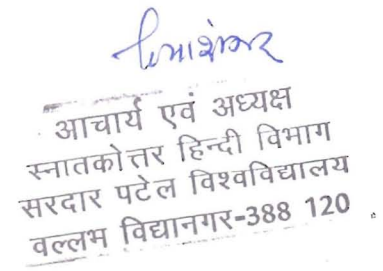 आचार्य एवं अध्यक्ष
स्नातकोत्तर हिन्दी विभाग
सरदार पटेल विश्वविद्यालय
वल्लभ विद्यानगर-388 120